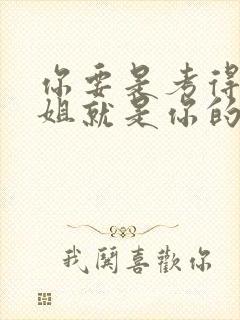 你要是考得
姐就是你的
我闗喜歡你